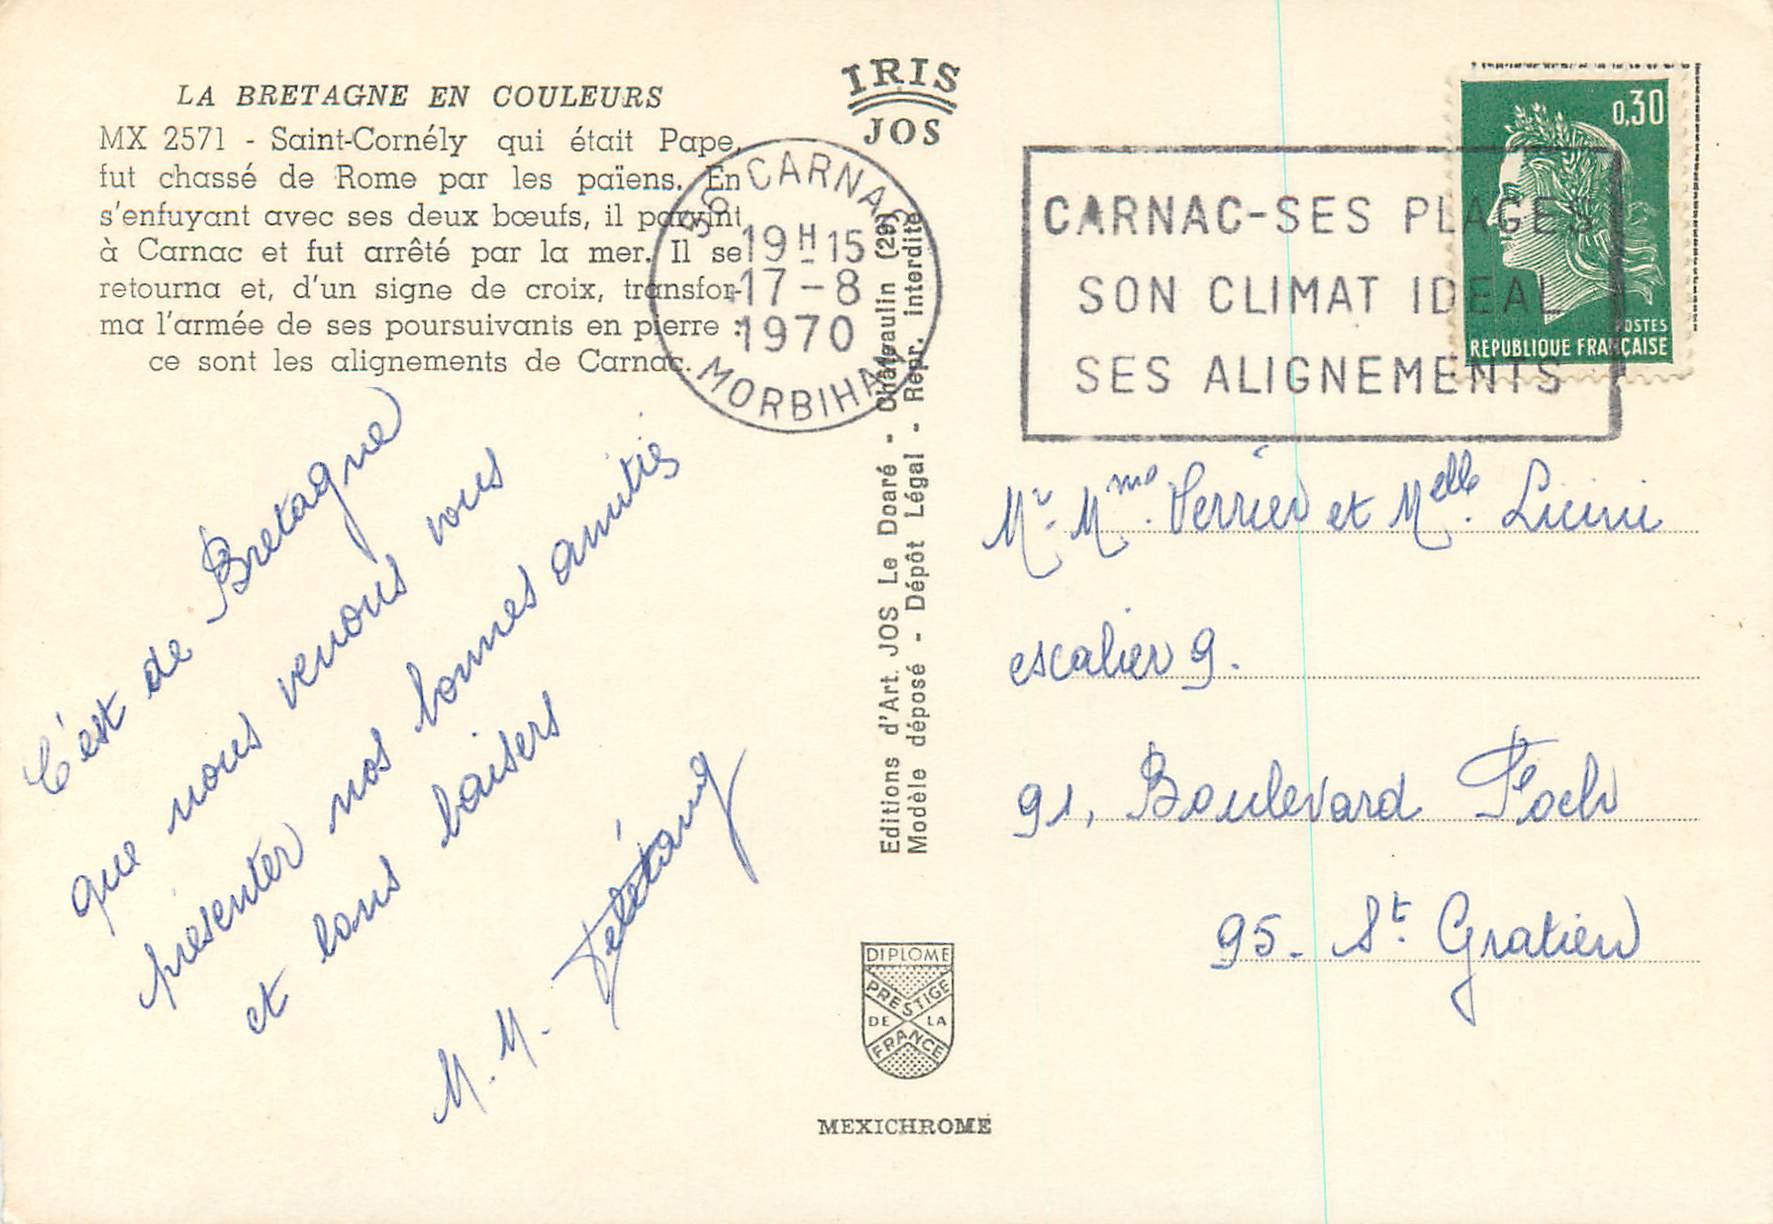 LA BRETAGNE EN COULEURS
MX 2571 - Saint-Cornély qui était Pape,
fut chassé de Rome par les païens. En
s'enfuyant avec ses deux bœufs, il parvint
à Carnac et fut arrêté par la mer. Il se
retourna et, d'un signe de croix, transfor-
ma l'armée de ses poursuivants en pierre :
ce sont les alignements de Carnac.
C'est de Bretagne
que nous venons vous
présenter nos bonnes amitiés
et bons baisers
M. M. Delétang
IRIS
JOS
56 CARNAC
19H15
17-8
1970
MORBIHAN
Editions d'Art. JOS Le Doaré - Châteaulin (29)
Modèle déposé - Dépôt Légal - Repr. interdite
DIPLOME
PRESTIGE
DE LA
FRANCE
MEXICHROME
CARNAC-SES PLAGES
SON CLIMAT IDEAL
SES ALIGNEMENTS
0,30
POSTES
REPUBLIQUE FRANÇAISE
Mr. Mme. Verrier et Melle. Licini
escalier 9.
91, Boulevard Foch
95. St. Gratien